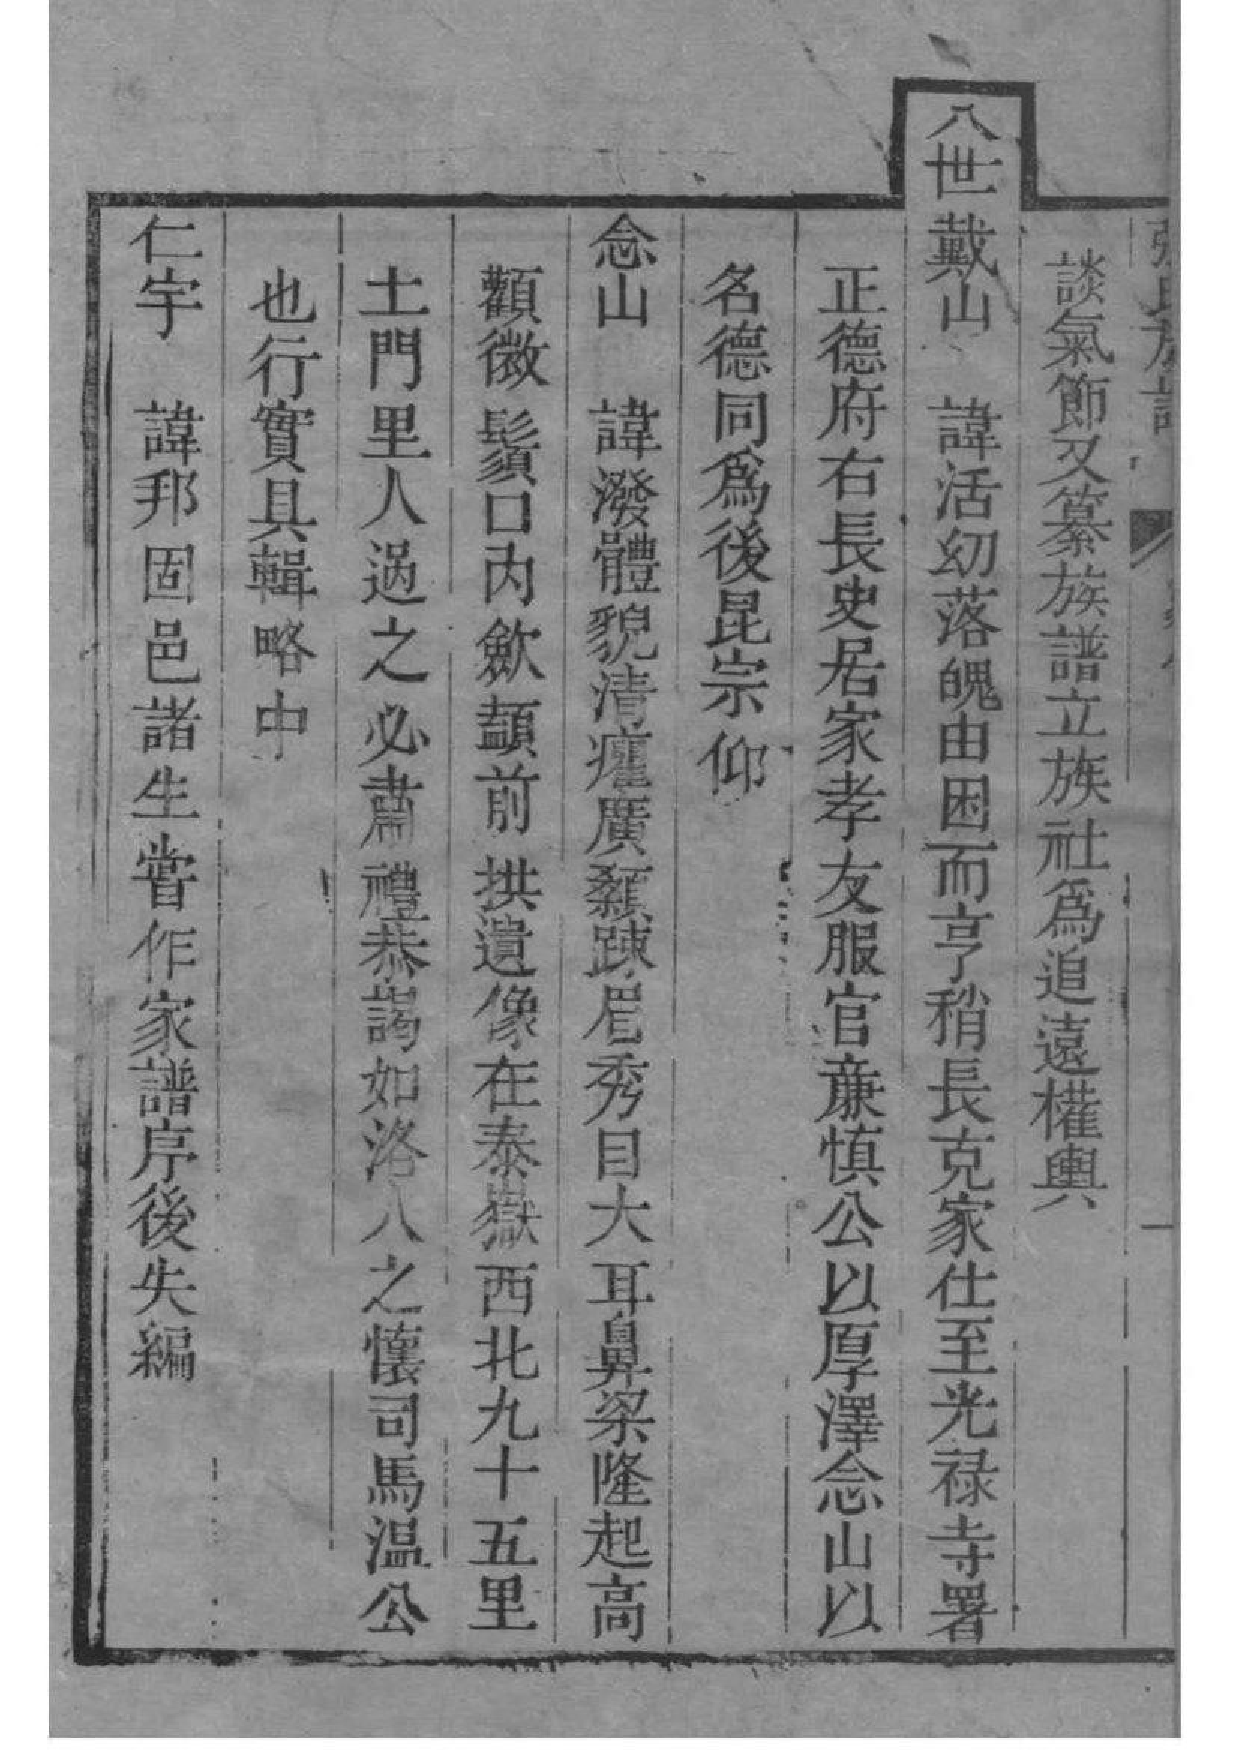 張氏族譜
談氣節又纂族譜立族社為追遠權輿
八世戴山 諱活幼落魄由困而亨稍長克家仕至光祿寺署
正德府右長史居家孝友服官廉慎公以厚澤念山以
名德同為後昆宗仰
念山 諱潑體貌清癯廣顙踈眉秀目大耳鼻梁隆起高
顴微鬚口內歛顓前拱遺像在泰嶽西北九十五里
土門里人過之必肅禮恭謁如洛人之懷司馬温公
也行實具輯略中
仁宇 諱邦固邑諸生嘗作家譜序後失編